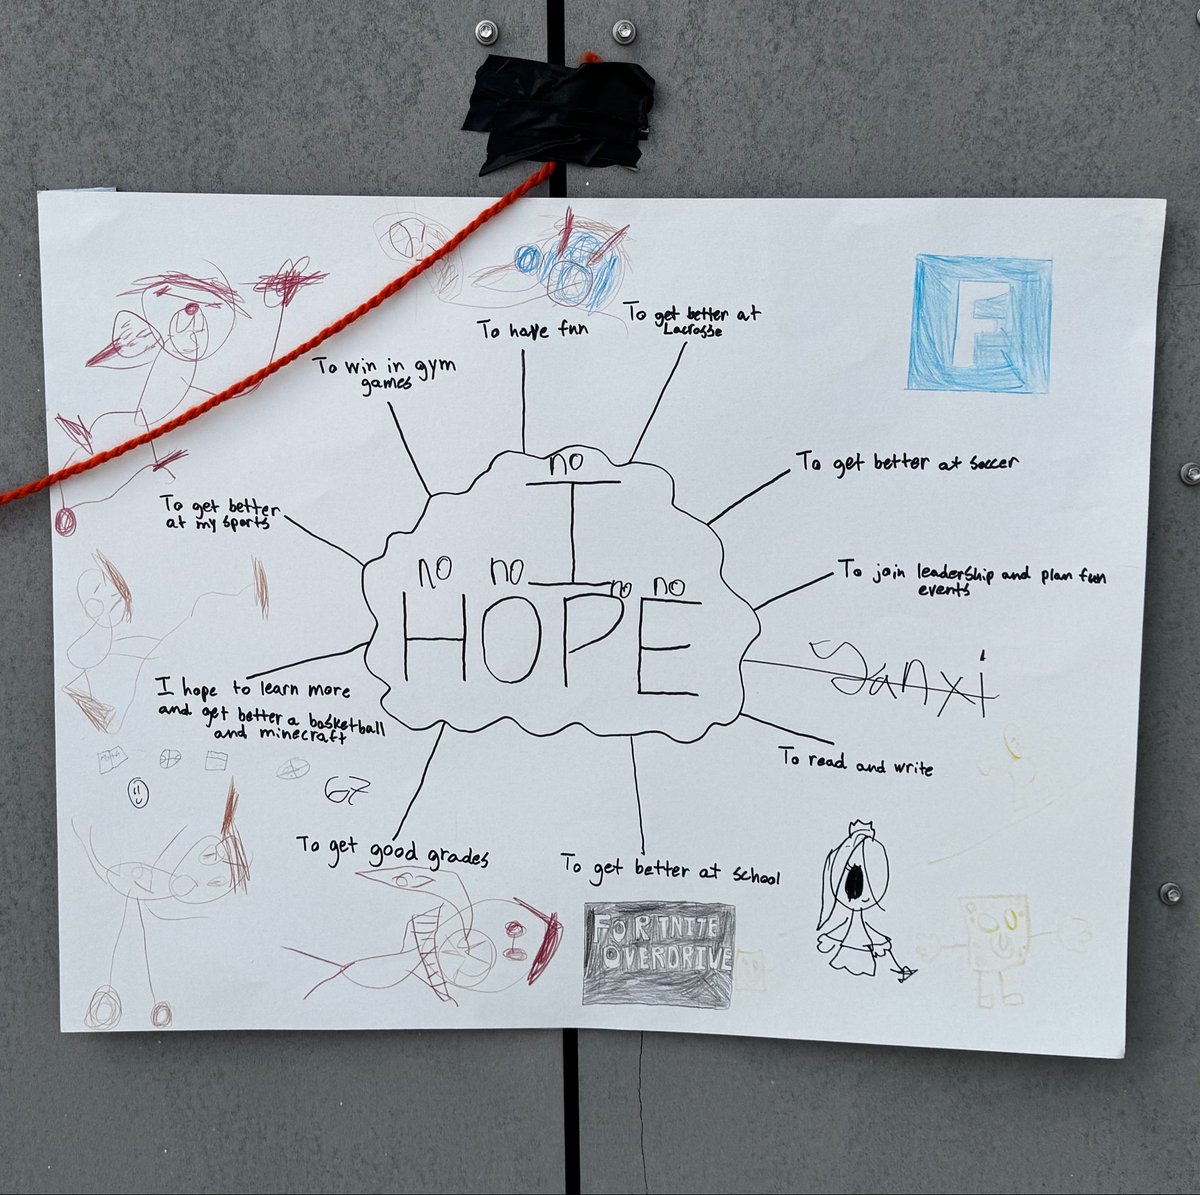 To have fun
To get better at
Lacrosse
F
To win in gym
games
To get better at soccer
To get better
at my sports
no
I
no no no no
HOPE
To join leadership and plan fun
events
Yanxi
I hope to learn more
and get better a basketball
and minecraft
To read and write
67
To get good grades
To get better at school
FORTNITE
OVERDRIVE